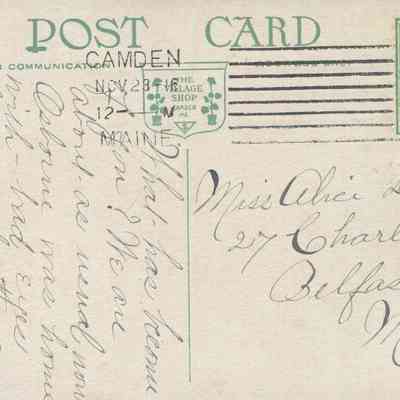 POST CARD
COMMUNICATION
CAMDEN
NOV 28
12— M
MAINE
THE
VILLAGE
SHOP
CAMDEN
ME.
What has become
you? We are
about as usual now
Osborne was home
with bad eyes
Miss Alice
27 Charl
Belfas
M